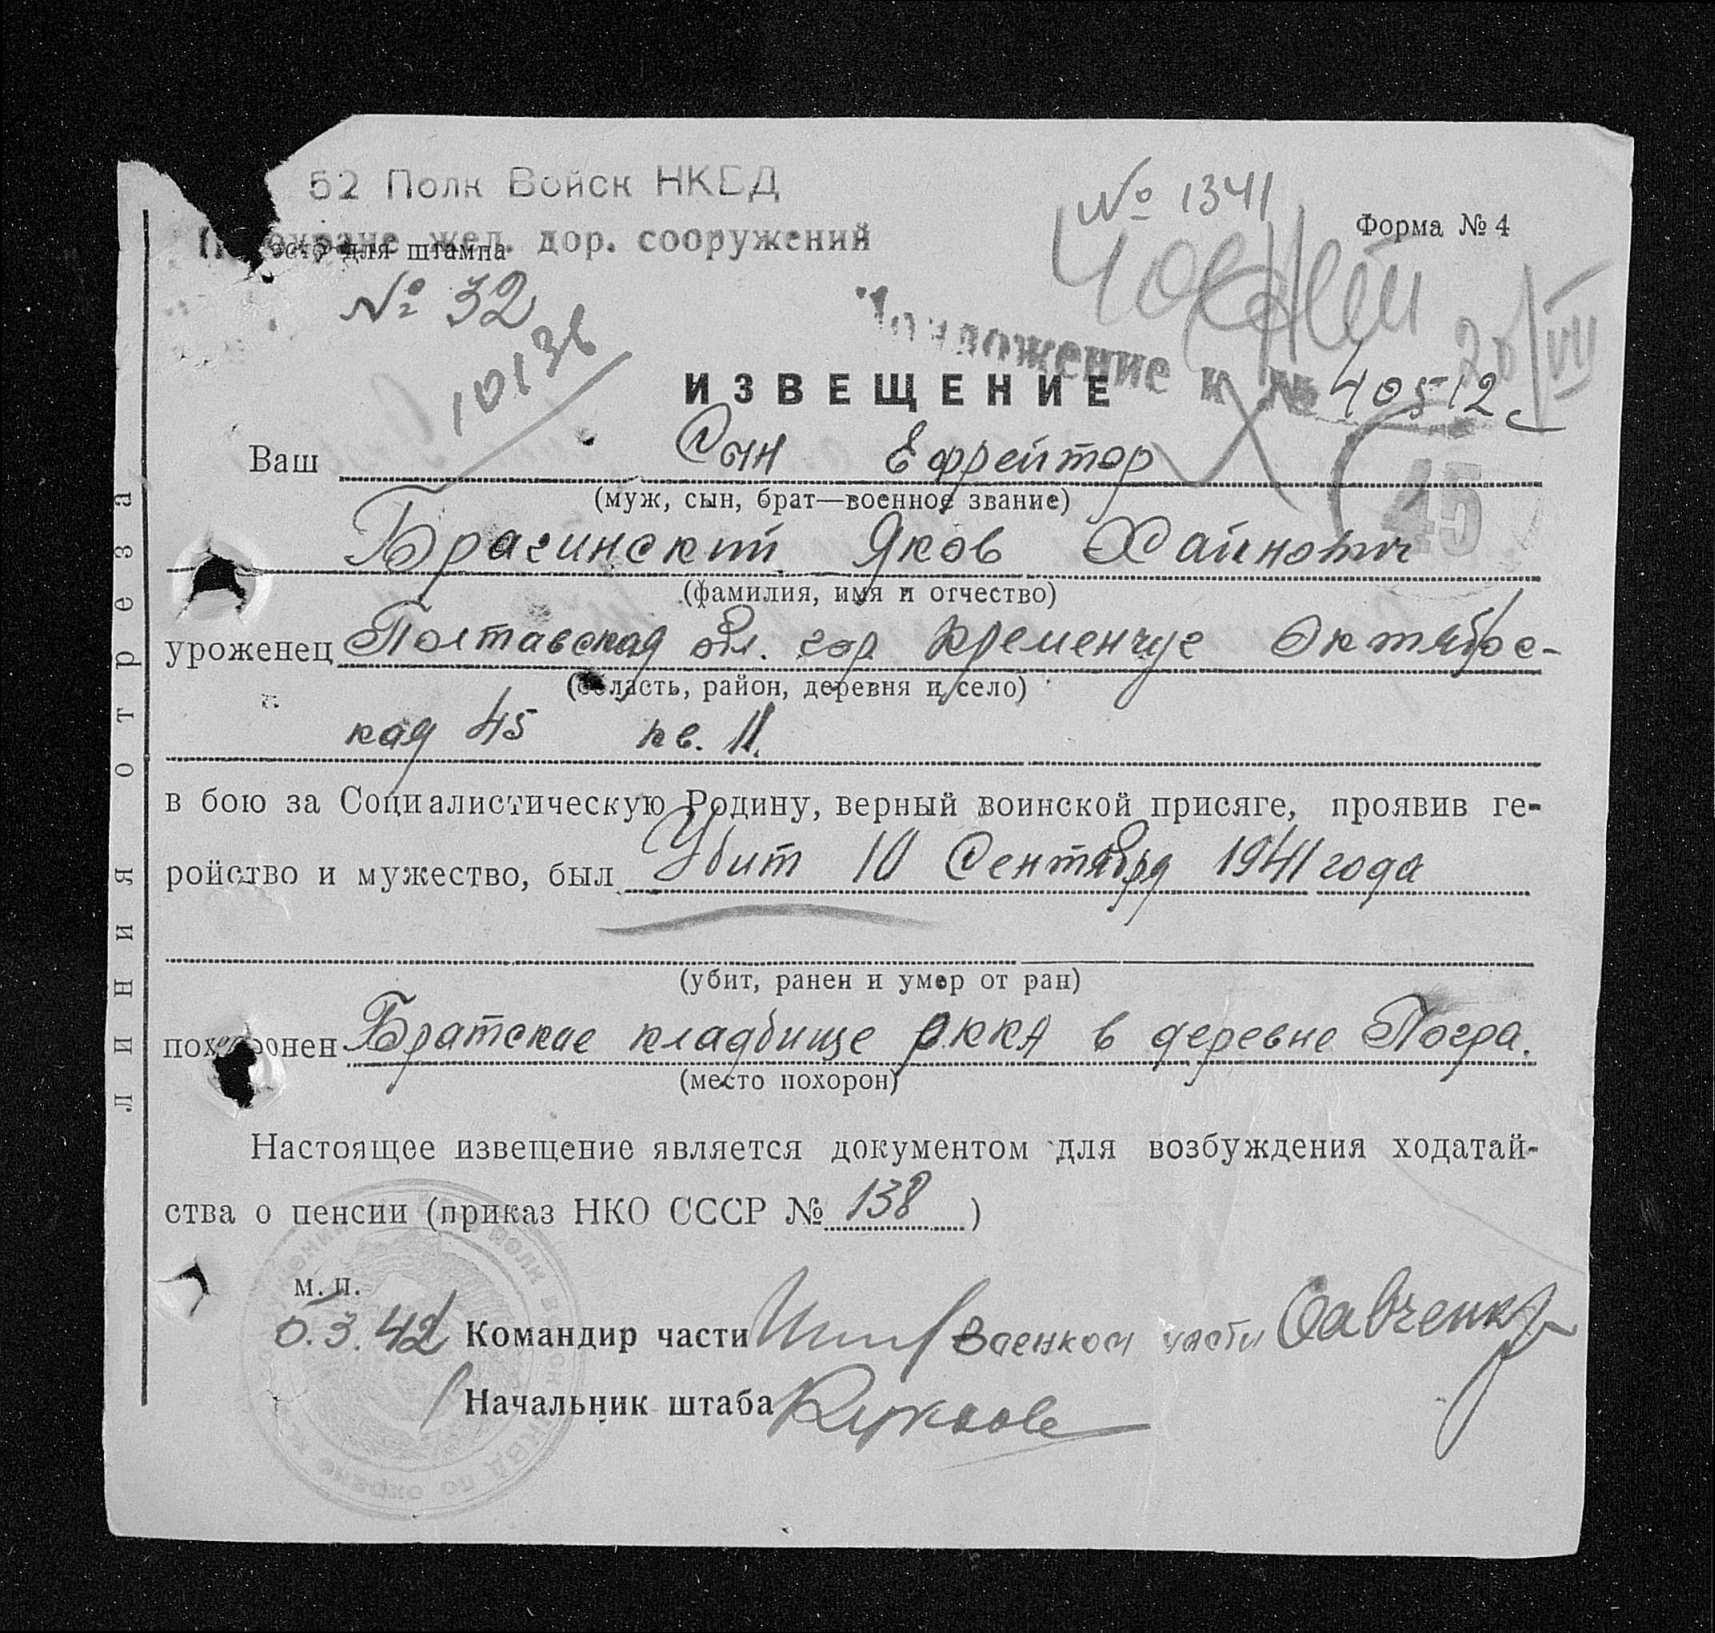 52 Полк Войск НКВД
охране жел. дор. сооружений
для штампа
№ 32
10136
№ 1341
Форма № 4
20/VII
Приложение к № 40512с
ИЗВЕЩЕНИЕ
45
Ваш Сын Ефрейтор
(муж, сын, брат—военное звание)
Брагинский Яков Хаймович
(фамилия, имя и отчество)
уроженец Полтавская обл. гор Кременчуг Октябрс-
(область, район, деревня и село)
кая 45 кв. 11.
в бою за Социалистическую Родину, верный воинской присяге, проявив ге-
ройство и мужество, был Убит 10 Сентября 1941 года
(убит, ранен и умер от ран)
похоронен Братское кладбище РККА в деревне Погра.
(место похорон)
Настоящее извещение является документом для возбуждения ходатай-
ства о пенсии (приказ НКО СССР № 138)
м. п.
0.3.42 Командир части Военком части Савченко
Начальник штаба
линия отреза